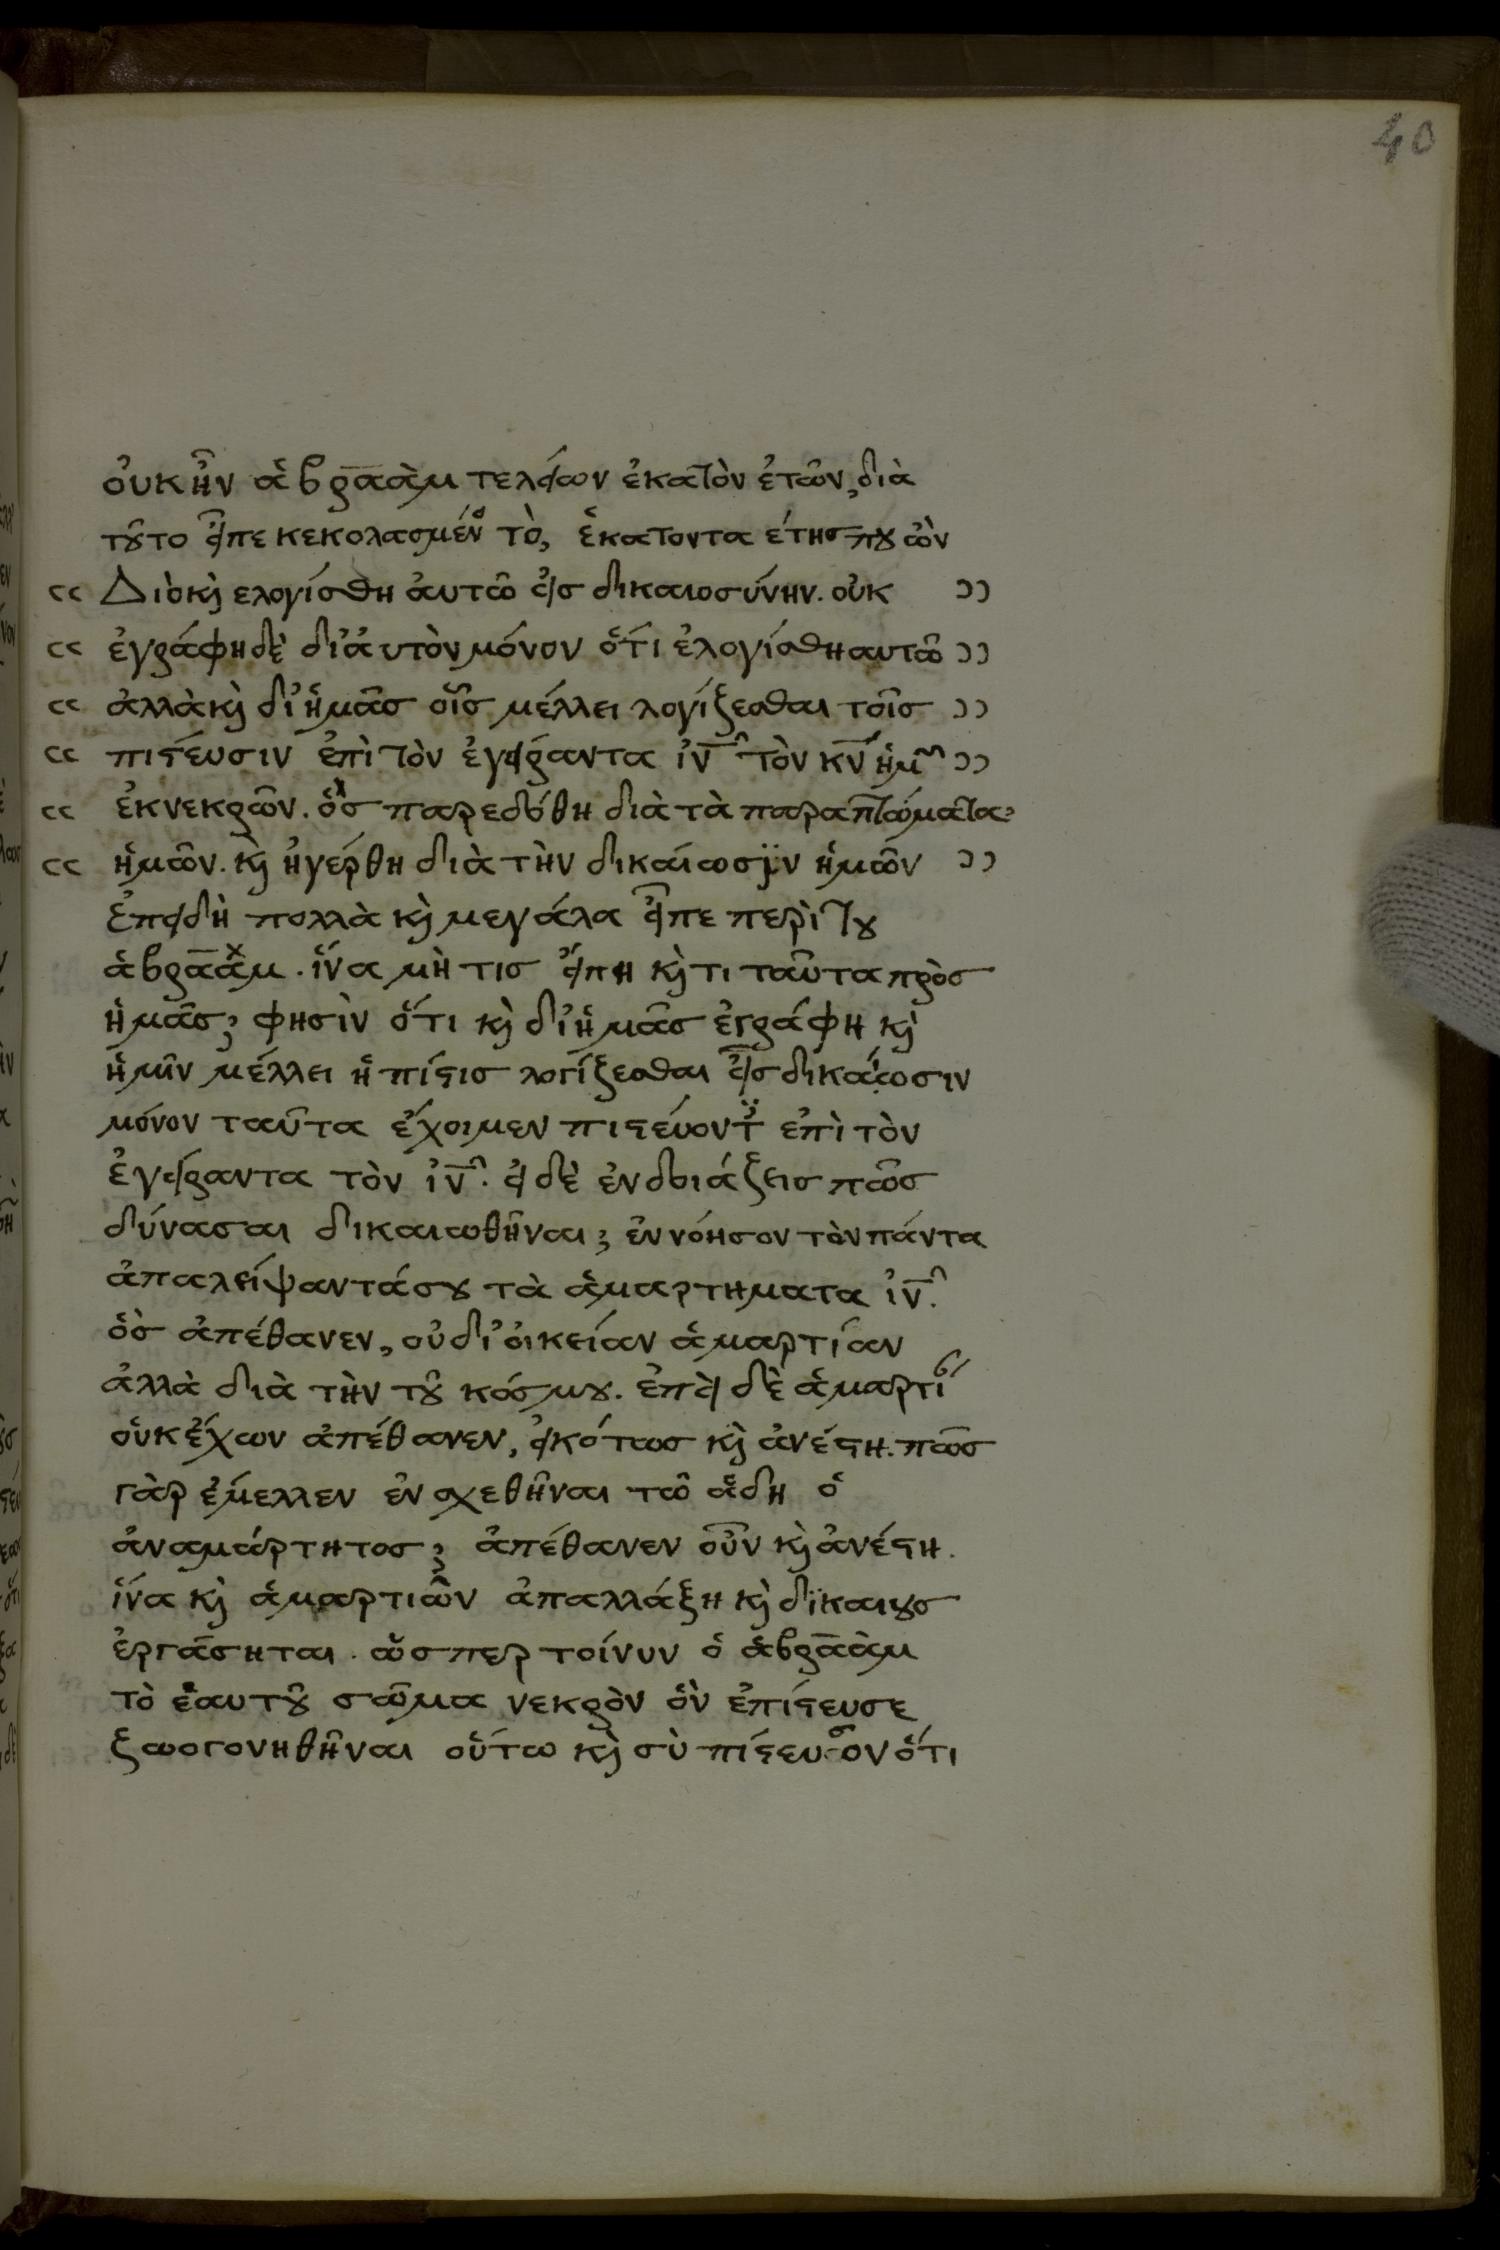 40
οὐκ ἦν ἁβραὰμ τελείων ἑκατὸν ἐτῶν, διὰ
τοῦτο εἶπε κεκολασμένον τὸ, ἑκατοντα έτης που ὢν
Διὸ κὶ ελογίσθη ἀυτῶ εἰς δικαιοσύνην. οὐκ
ἐγράφη δὲ δι ἀυτὸν μόνον ὅτι ἐλογίσθη αυτῶ
ἀλλὰ κὶ δι ἡμᾶς οἷς μέλλει λογίζεσθαι τοῖς
πιστέυσιν ἐπὶ τὸν ἐγείραντα ἰν̅ τὸν κν̅ ἡμῶν
ἐκ νεκρῶν. ὃς παρεδόθη διὰ τὰ παραπτώματα
ἡμῶν. κὶ ἠγέρθη διὰ τὴν δικαίωσϊν ἡμῶν
Ἐπειδὴ πολλὰ κὶ μεγάλα εἶπε περὶ τοῦ
ἁβραὰμ. ἵνα μὴ τις εἴπη κὶ τι ταῦτα πρὸς
ἡμᾶς; φησὶν ὅτι κὶ δι ἡμᾶς ἐγράφη κὶ
ἡμῖν μέλλει ἡ πίστις λογίζεσθαι εἰς δικαίωσιν
μόνον ταῦτα ἔχοιμεν πιστέυοντες ἐπὶ τὸν
ἐγείραντα τὸν ἰν̅. εἰ δὲ ἐνδοιάζεις πῶς
δύνασαι δικαιωθῆναι; ἐννόησον τὸν πάντα
ἀπαλείψαντά σου τὰ ἁμαρτηματα ἰν̅.
ὃς ἀπέθανεν, οὐ δι ὀικείαν ἁμαρτίαν
ἀλλὰ διὰ τὴν τοῦ κόσμου. ἐπεὶ δὲ ἁμαρτίαν
οὐκ ἔχων ἀπέθανεν, εἰκότως κὶ ἀνέστη. πῶς
γὰρ ἔμελλεν ἐνσχεθῆναι τῶ ἅδη ὁ
ἀναμάρτητος; ἀπέθανεν οὖν κὶ ἀνέστη.
ἵνα κὶ ἁμαρτιῶν ἀπαλλάξη κὶ δϊκαιους
ἐργάσηται. ὥσπερ τοίνυν ὁ ἁβραὰμ
τὸ ἑαυτοῦ σῶμα νεκρὸν ὂν ἐπίστευσε
ζωογονηθῆναι οὕτω κὶ σὺ πίστευσον ὅτι